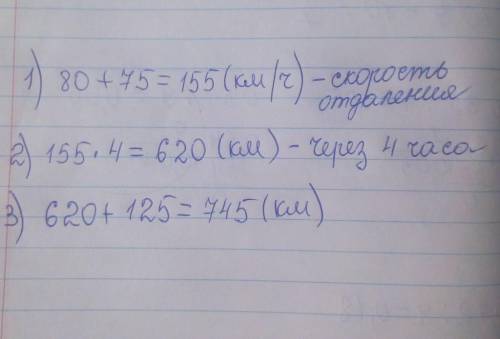 1) 80 + 75 = 155 (км/ч) – скорость
отдаления
2) 155 · 4 = 620 (км) – через 4 часа
3) 620 + 125 = 745 (км)